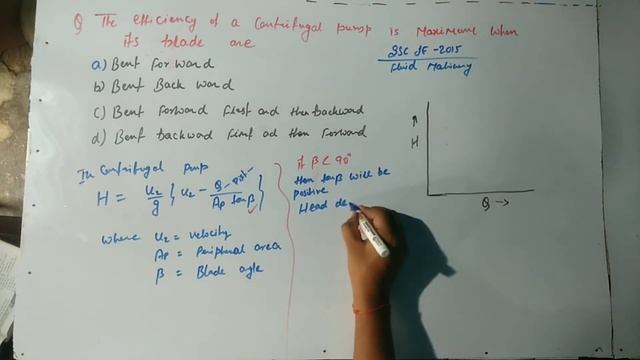 Q The efficiency of a Centrifugal pump is Maximum when
its blade are
SSC JE - 2015
Fluid Machinery
a) Bent For ward
b) Bent Back ward
c) Bent Forward First and then backward
d) Bent backward First ad then Forward
In Centrifugal Pump
H = u2/g { u2 - Q / Ap tan β }
where u2 = velocity
Ap = Peripheral area
β = Blade angle
if β < 90°
then tanβ will be
positive
Head de
H
Q →